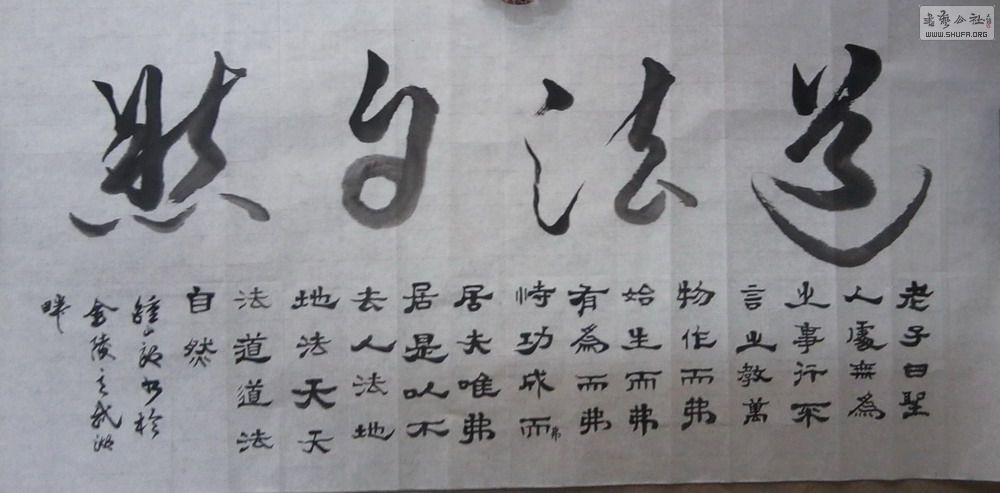 道法自然
老子曰聖
人處無為
之事行不
言之教萬
物作而弗
始生而弗
有為而弗
恃功成而弗
居夫唯弗
居是以不
去人法地
地法天天
法道道法
自然
鍾山书於
金陵玄武湖
畔
書藝公社
WWW.SHUFA.ORG